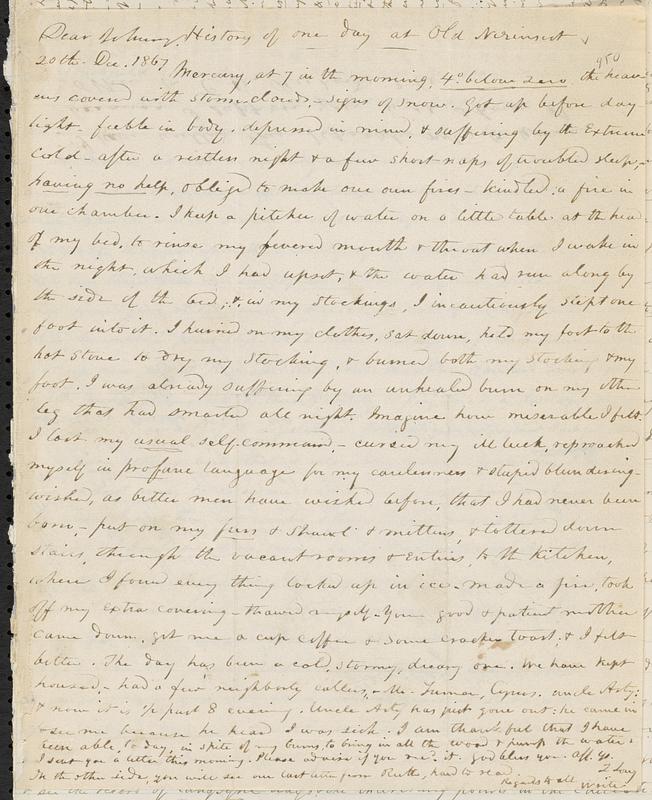 Dear Johnny. History of one day at Old Nerinscot
950
20th Dec. 1867 Mercury, at 7 in the morning, 4° below zero, the heav-
ens covered with storm-clouds,- signs of snow. Got up before day
light - feeble in body, depressed in mind, & suffering by the Extreme
Cold - after a restless night & a few short naps of troubled sleep,-
having no help, obliged to make our own fires - kindled a fire in
our chamber. I keep a pitcher of water on a little table at the head
of my bed, to rinse my fevered mouth & throat when I wake in
the night, which I had upset, & the water had run along by
the side of the bed; & in my stockings, I incautiously slept one
foot into it. I hurried on my clothes, sat down, held my foot to the
hot stove to dry my stocking, & burned both my stocking & my
foot. I was already suffering by an unhealed burn on my other
leg that had smarted all night. Imagine how miserable I felt.
I lost my usual self-command,- cursed my ill luck, reproached
myself in profane language for my carelessness & stupid blundering-
wished, as better men have wished before, that I had never been
born,- put on my furs & shawl & mittens, & tottered down
stairs, through the vacant rooms & entries, to the kitchen,
where I found every thing locked up in ice - made a fire, took
off my extra covering - thawed myself - Your good & patient mother
came down, got me a cup coffee & some cracker toast, & I felt
better. The day has been a cold, stormy, dreary one. We have kept
housed,- had a few neighborly callers,- Mr. Turner, Cyrus, uncle Arty;
& now it is ½ past 8 evening. Uncle Arty has just gone out: he came in
to see me because he heard I was sick. I am thankful that I have
been able, to day, in spite of my burns, to bring in all the wood & pump the water.
I sent you a letter this morning. Please advise if you rec. it. God bless you. aff. yrs.
In the other side, you will see our last letter from Ruth, hard to read.
Regards to all
write